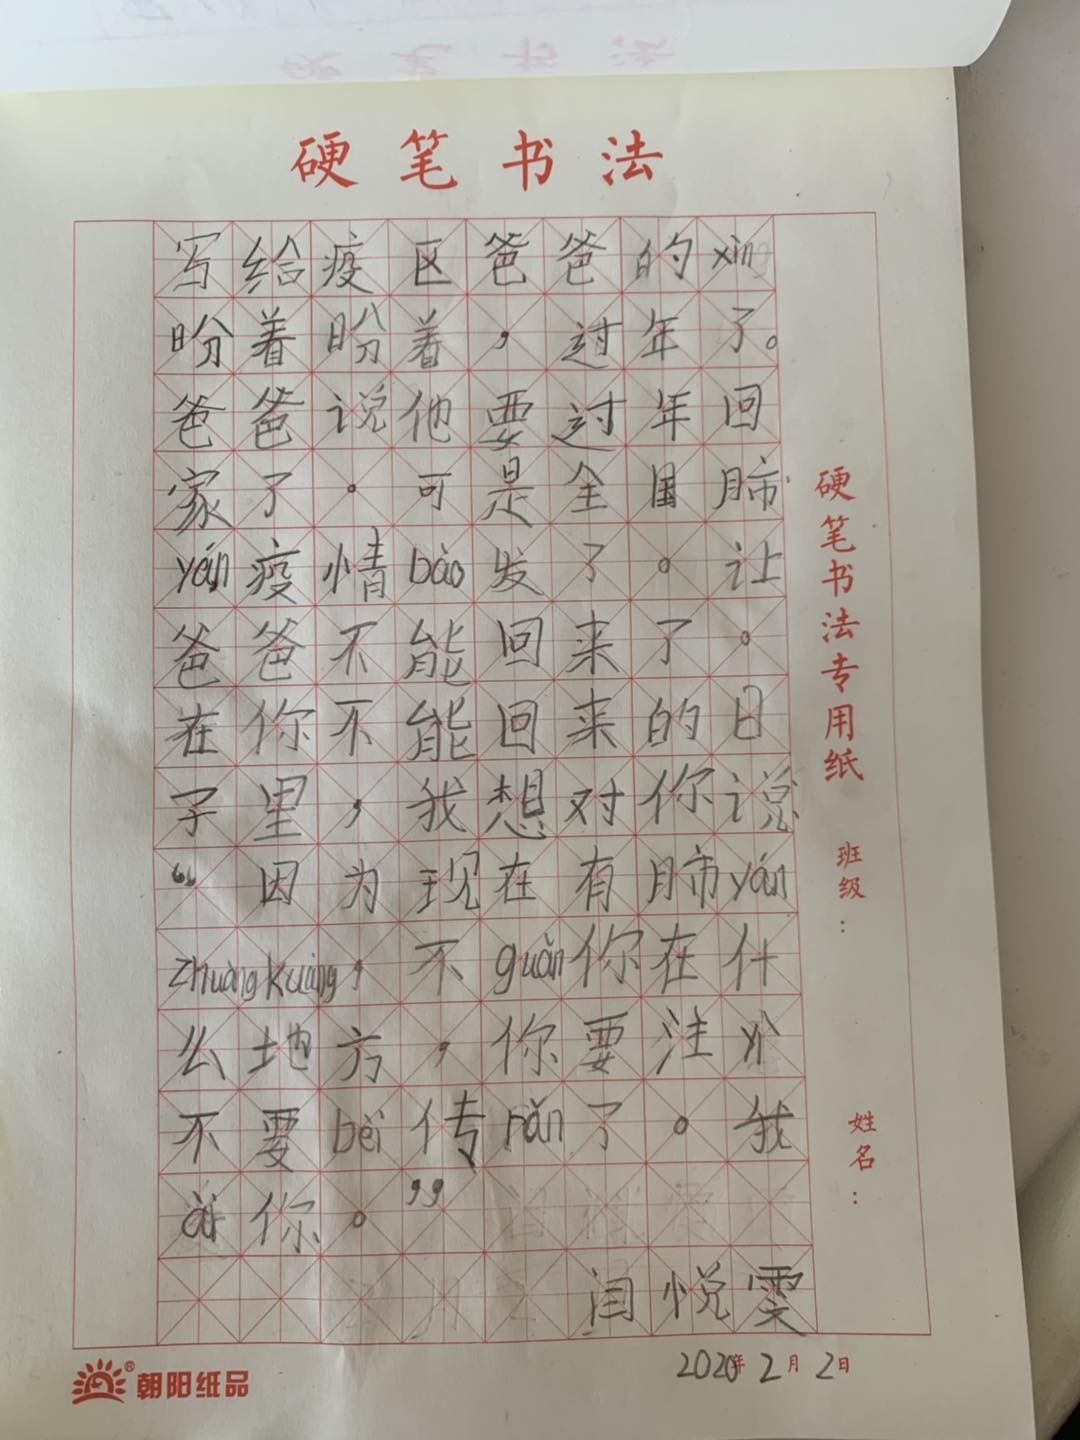 硬笔书法
写给疫区爸爸的xìn
盼着盼着，过年了。
爸爸说他要过年回
家了。可是全国肺
yán疫情bào发了。让
爸爸不能回来了。
在你不能回来的日
子里，我想对你说
“因为现在有肺yán
zhuàng kuàng，不guǎn你在什
么地方，你要注yì
不要bèi传rǎn了。我
ài你。”
闫悦雯
2020年2月2日
硬笔书法专用纸
班级：
姓名：
朝阳纸品